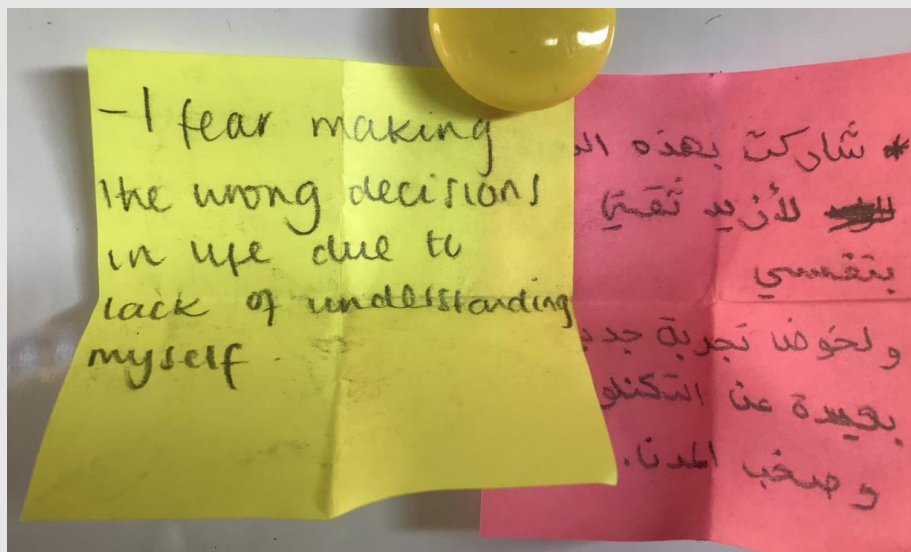 - I fear making
the wrong decisions
in life due to
lack of understanding
myself.
* شاركت بهذه
لأزيد ثقتي
بنفسي
ولخوض تجربة
بعيدة عن
وصخب المدن.